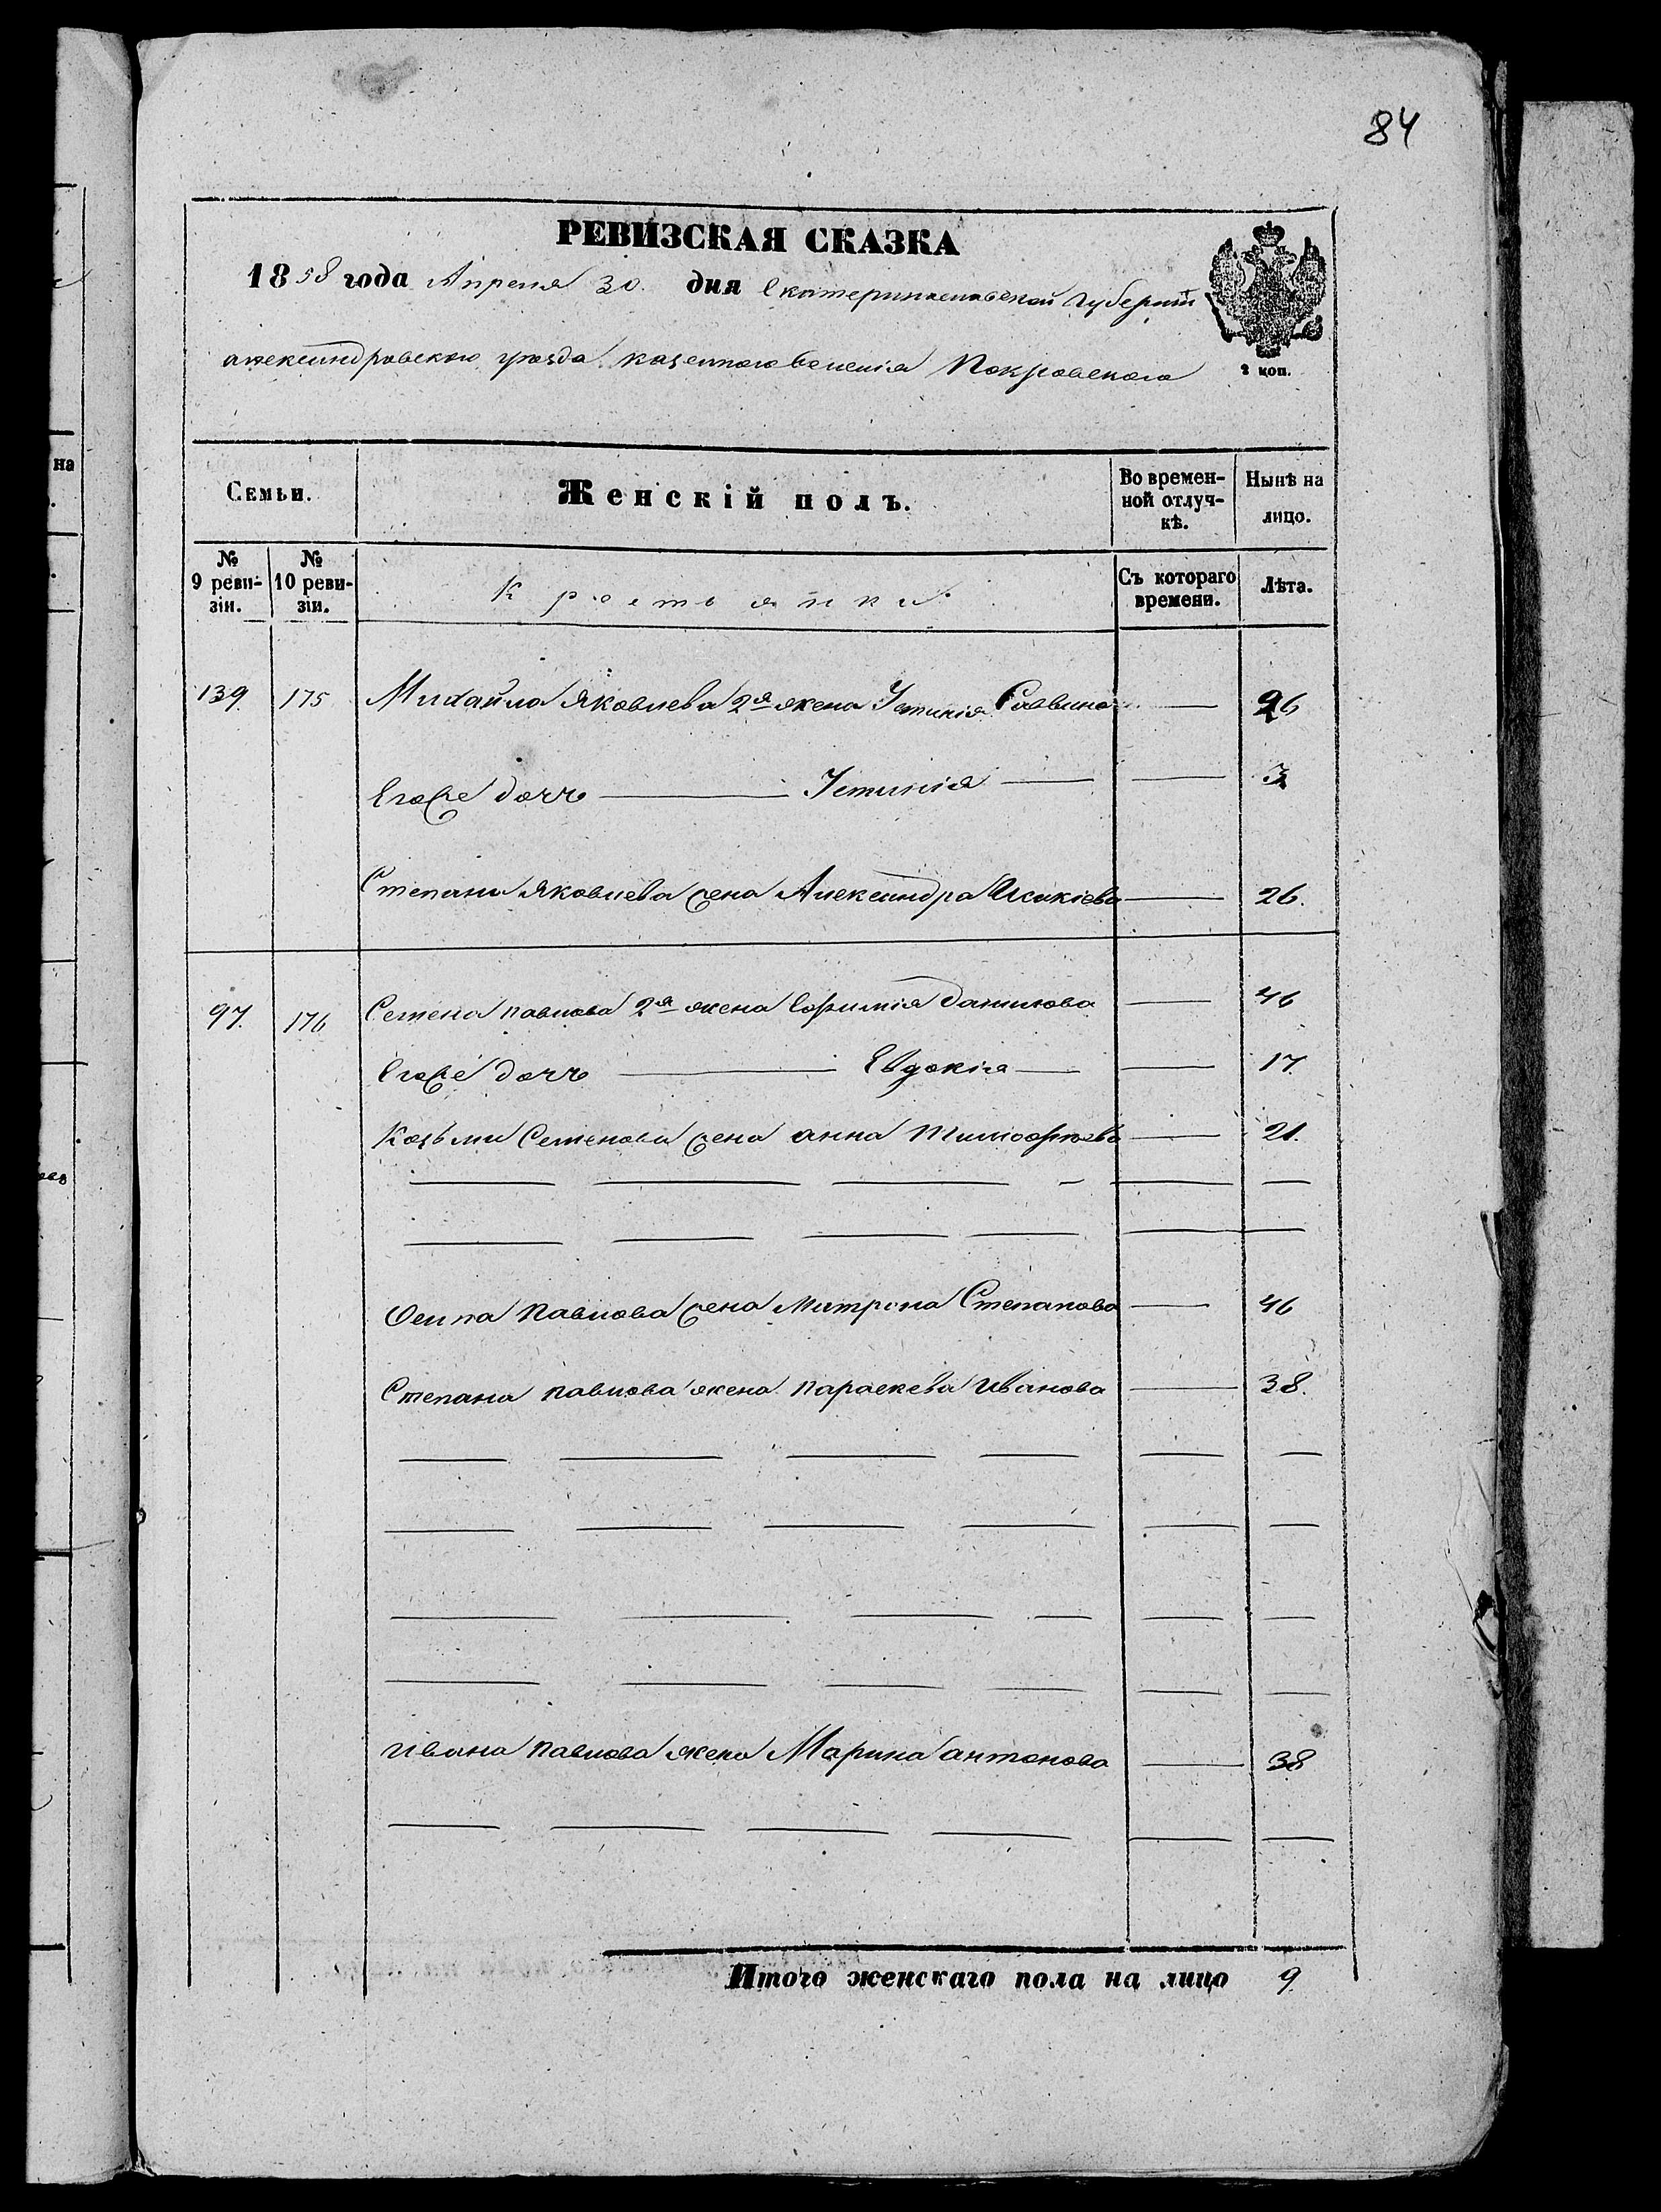 84
РЕВИЗСКАЯ СКАЗКА
1858 года Апреля 30 дня Екатеринославской Губернiи
Александровского уезда казенного селенiя Покровского
2 коп.
Семьи. Женскiй полъ. Во временной отлучкѣ. Нынѣ на лицо.
№ 9 ревизiи. № 10 ревизiи. Крестьянки Съ котораго времени. Лѣта.
139. 175 Михайла Яковлева 2я жена Устинiя Саввина — 26
Его 2е дочь — Устинiя — — 3
Степана Яковлева жена Александра Исакiева — 26.
97. 176 Семена Павлова 2я жена Ефимiя Данилова — 46
Его 2е дочь — Евдокiя — — 17
Козьмы Семенова жена Анна Тимофеева — 21.
Осипа Павлова жена Матрона Степанова — 46
Степана Павлова жена Параскева Иванова — 38.
Ивана Павлова жена Марина Антонова — 38
Итого женскаго пола на лицо 9.
на